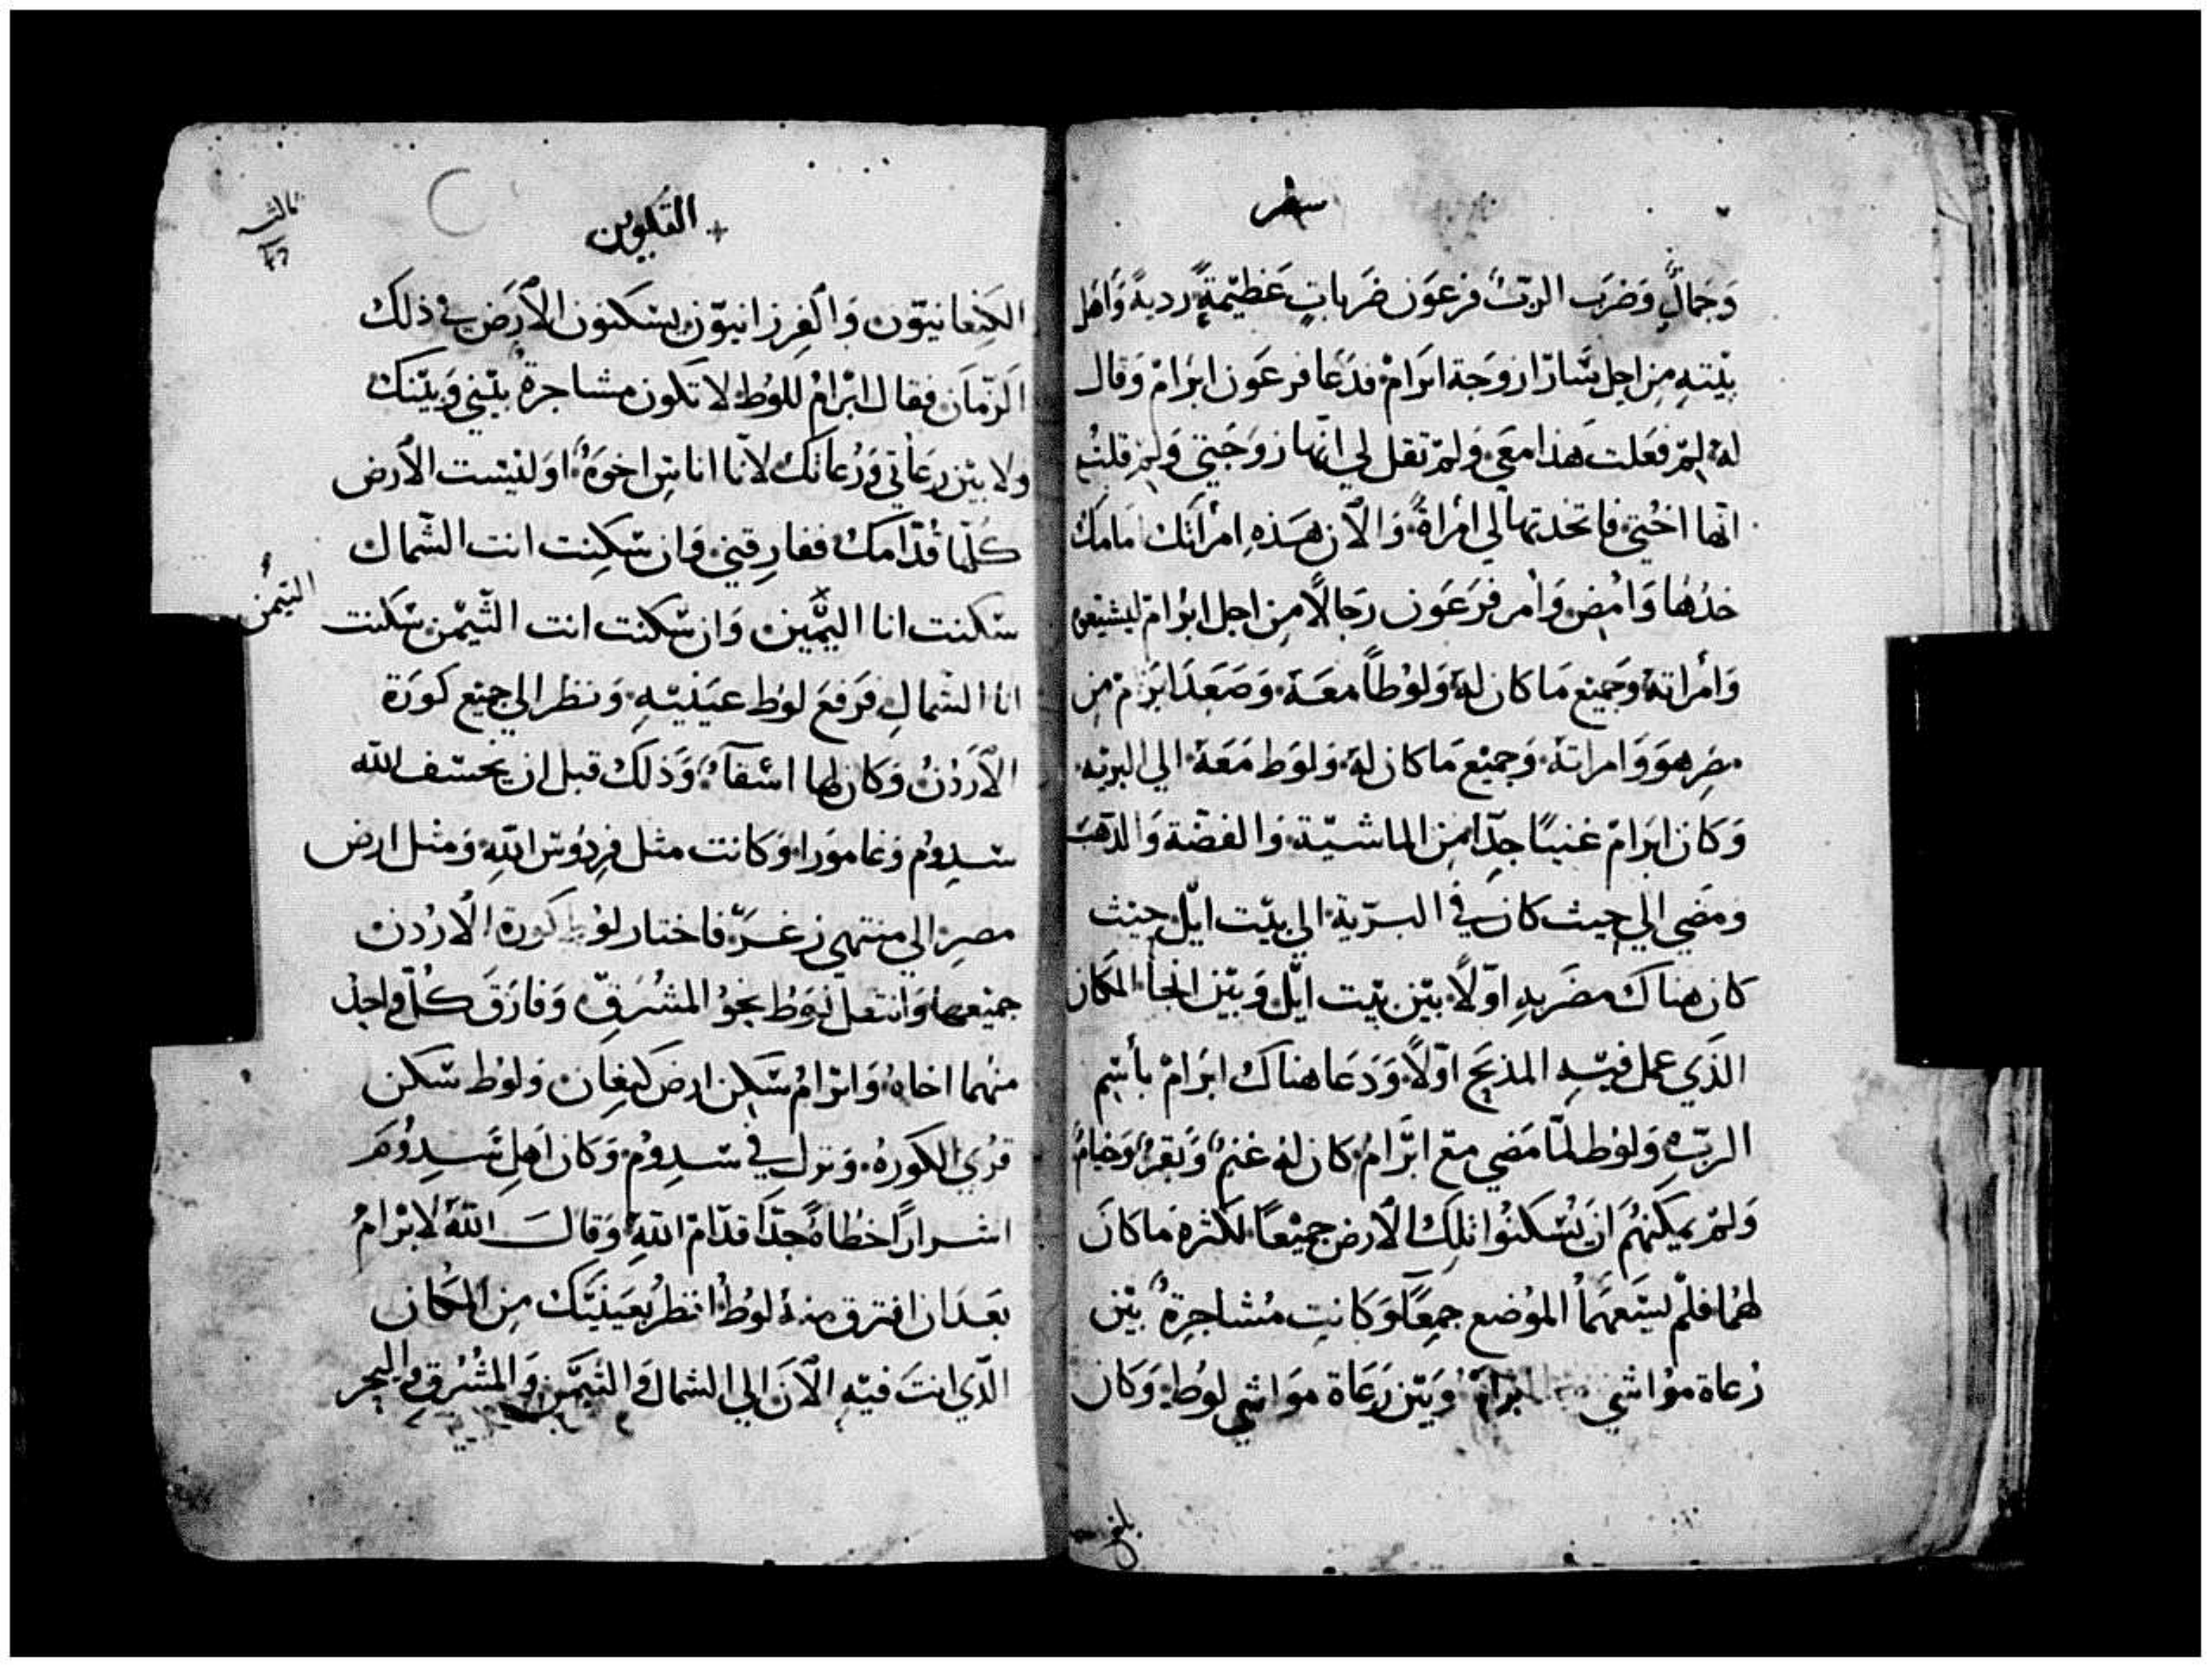 سفر
وَجَمالٍ وَضرَب الربّ فرعَون ضَرباتٍ عَظيّمةٍ رديةً وَاهل
بيْتهِ مِن اجل سَّارّا زوَجة ابرَامْ فدَعَا فرعَون ابرَامْ وَقال
لهُ لِمَ فعَلت هَذا معَي وَلمْ تقل لي انّها زوَجَتي وَلِمَ قلت
انّها اختي فاتخدتها لي امرأةً وَالآن هَذهِ امرأتك امَامكَ
خدْهَا وَامْضِ وَأمر فرَعَون رجَالاً مِن اجل ابرَام ليشيّعوه
وَامْرأتهُ وجَميْع مَا كان لهُ وَلوُطاً معَهُ وَصَعَد ابرَامْ مِن
مصْر هوَ وَامراتهُ وَجميْع مَا كان لهُ وَلوَط مَعَهُ الي البريّه
وَكان ابرَامْ غنيًا جدّاً مِن الماشيّة وَالفضّة وَالدّهبَ
ومَضي الي حيث كان في البرّية الي بيّت ايّل حيْث
كان هناك مضرَبهِ اوّلاً بيْن بيّت ايّل وَبيْن الجأ المكان
الذَي عمل فيّهِ المذبَح اوّلاً وَدَعَا هناك ابرَامْ بأسْم
الربّ وَلوُط لمّا مَضي مَع ابرَّامُ كان لهُ غنمٌ وَبقرٌ وَخيامٌ
وَلمْ يمكِنهُمَ انَ يسْكنوُا تلِك الأرض جميْعًا لكثرة مَا كانَ
لهُمَا فلْم يسَعهُمَا الموُضع جمِعًا وَكانت مُشاجرةٌ بيْن
رُعاة موُاشي ابرَامْ وَبيْن رَعَاة موَاشي لوُط وَكان
بلغ
+ التكوين
ثالث
الكنعَانيوّن وَالفِرزانيوّن يسَكنون الأرَض في ذلك
الزمّان فقال ابْرامُ للوُط لا تكون مشاجرةٌ بيْني وَبيْنك
ولا بيْن رعَاتي وَرُعاتك لانّا اناس اخوَةٌ اوَليْست الأرض
كُلّها قدّامك ففارِقني وَان سّكنت انت الشّمال
سّكنت انا اليمّين وَان سّكنت انت التّيْمْن سّكنت
التيمُن
انا الشّمالِ فرَفعَ لوُط عيَنيْهِ وَنظر الي جميْع كورَة
الأردُن وَكان لها اسْقآءٌ وَذلك قبل ان يخسّف الله
سّدوُم وَغاموَرا وَكانت مثل فِردُوس اللهِ وَمثل ارض
مصرِ الي منتهي زغَرَّ فاختار لوُط كورة الأردُن
جميْعها وَانتقل لوُط نحوُ المشُرَقّ وَفارَقَ كُلّ واحِدٌ
منهُما اخاهُ وَابرَامُ سّكن ارضَ كنعَان وَلوُط سّكن
قرُي الكورَةُ وَنزل في سّدوُم وَكان اهل سَّدوُمَ
اشراراً خطاةً جدّاً قدّامَ اللهِ وَقالَ اللهُ لابرامُ
بعَدَ ان افترق منهُ لوُط انظرُ بعَينيّك مِن المكان
الّذي انتَ فيّهِ الآنَ الي الشمال وَالتيَمَّن وَالمشُرَق وَالبحر